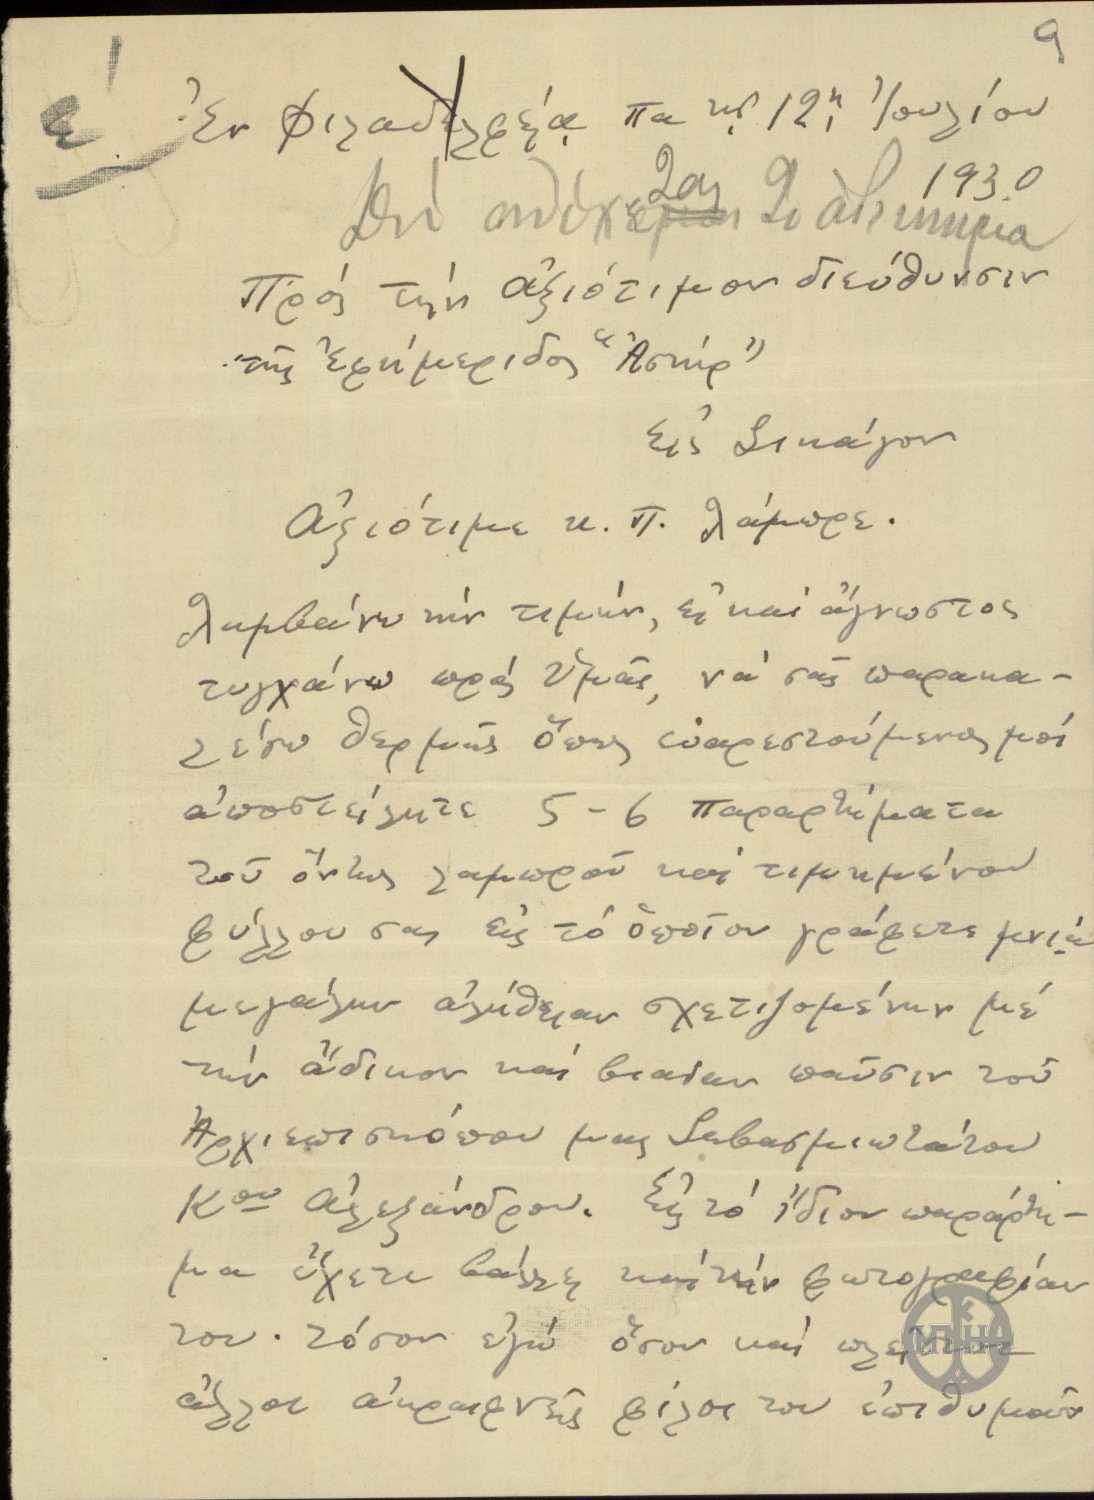 9
Ε'
Ἐν Φιλαδελφείᾳ Πα τῇ 12ῃ Ἰουλίου
1930
Σας
Πρός τήν ἀξιότιμον διεύθυνσιν
τῆς Ἐφημερίδος "Ἀστήρ"
Εἰς Σικάγον
Ἀξιότιμε κ. Π. Λάμπρε.
Λαμβάνω τήν τιμήν, εἰ καί ἄγνωστος
τυγχάνω πρός Ὑμᾶς, νά σᾶς παρακα-
λέσω θερμῶς ὅπως εὐαρεστούμενος μοί
ἀποστείλητε 5-6 παραρτήματα
τοῦ ὄντως λαμπροῦ καί τιμημένου
φύλλου σας εἰς τό ὁποῖον γράφετε μνίαν
μεγάλην ἀλήθειαν σχετιζομένην μέ
τήν ἄδικον καί βιαίαν παῦσιν τοῦ
Ἀρχιεπισκόπου μας Σεβασμιωτάτου
Κου Ἀλεξάνδρου. Εἰς τό ἴδιον παράρτη-
μα ἔχετε βάλει καί τήν φωτογραφίαν
του. τόσον ἐγώ ὅσον καί πλεῖστοι
ἄλλοι ἀκραιφνεῖς φίλοι του ἐπιθυμοῦν